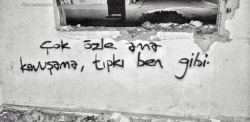 Çok özle ama
kavuşama, tıpkı ben gibi.